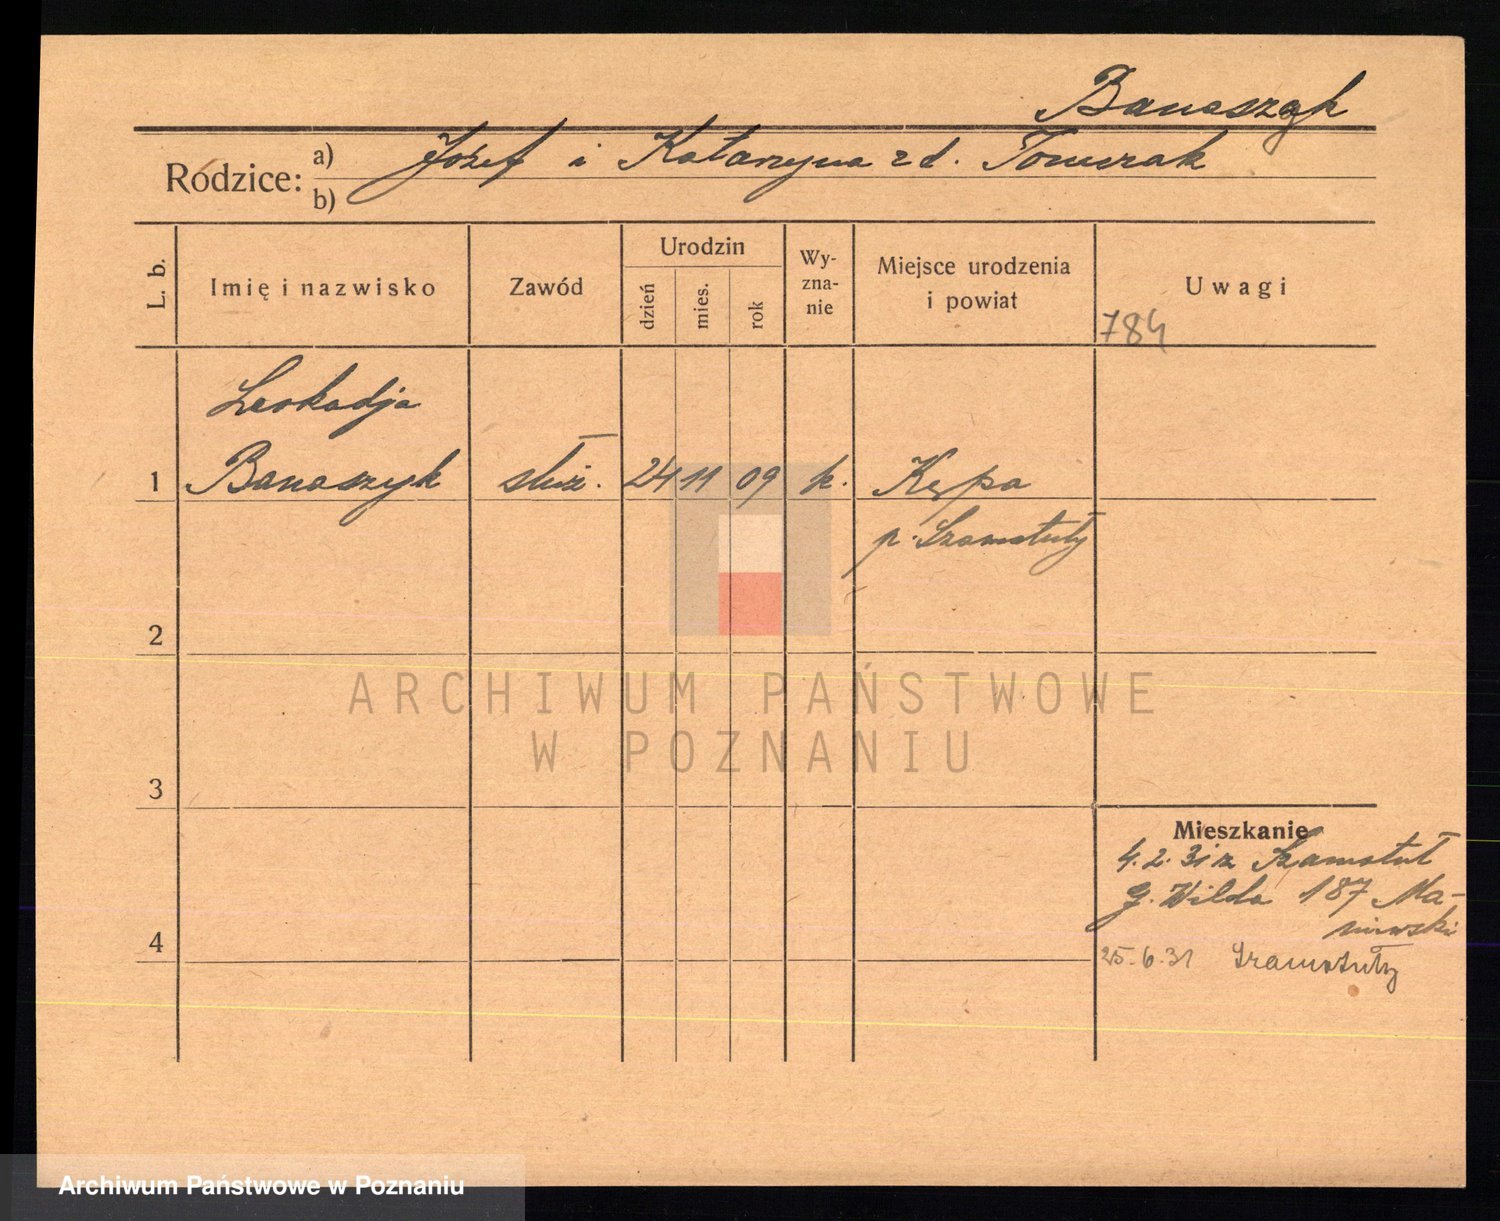 Banaszyk
Rodzice: a) Józef i Katarzyna zd. Tomczak
b)
L. b. Imię i nazwisko Zawód Urodzin dzień mies. rok Wy-zna-nie Miejsce urodzenia i powiat Uwagi
784
Leokadja
1 Banaszyk służ. 24 11 09 k. Kępa
p. Szamotuły
2
ARCHIWUM PAŃSTWOWE
W POZNANIU
3
Mieszkanie
4. 2. 31 z Szamotuł
g. Wilda 187 Ma-
niewski
4
25. 6. 31 Szamotuły
Archiwum Państwowe w Poznaniu